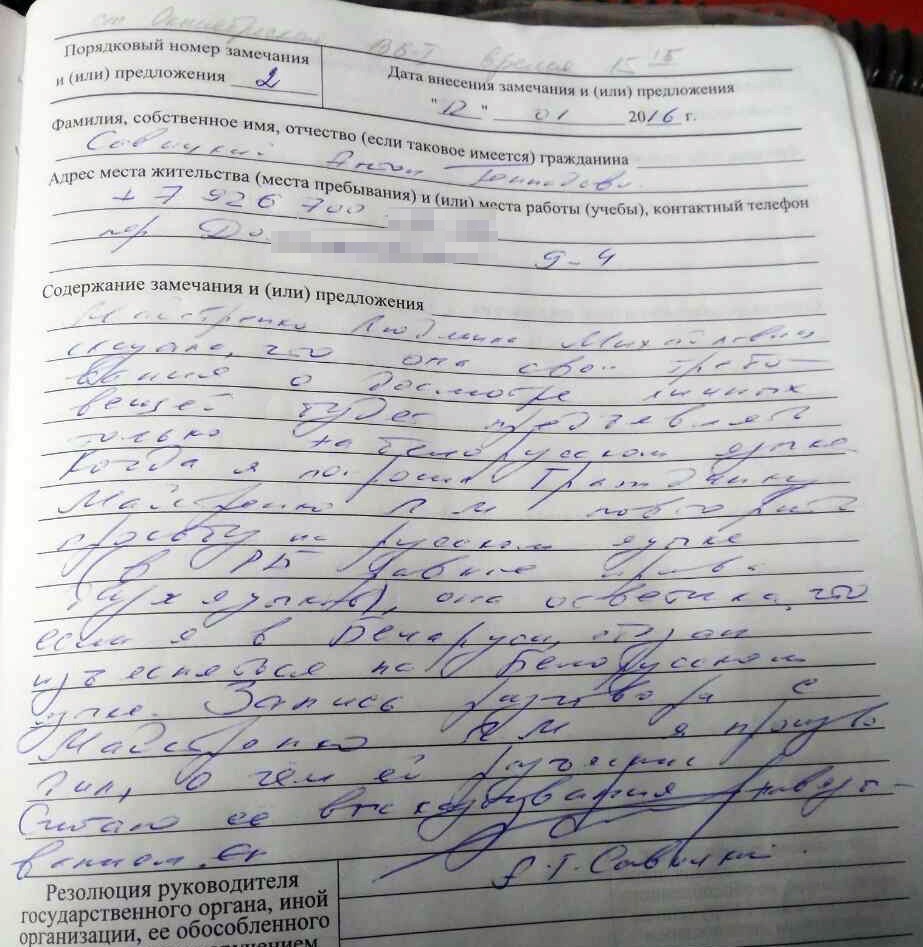 ст. Октябрьская ВБ-I время 15 15
Порядковый номер замечания
и (или) предложения 2
Дата внесения замечания и (или) предложения
"12" 01 2016 г.
Фамилия, собственное имя, отчество (если таковое имеется) гражданина
Савицкий Антон
Адрес места жительства (места пребывания) и (или) места работы (учебы), контактный телефон
+ 7 926 700
пер До д-4
Содержание замечания и (или) предложения
Майстренко Людмила Михайловна
сказала, что она свои требо-
вания о досмотре личных
вещей будет предъявлять
только на белорусском языке.
Когда я попросил гражданку
Майстренко Л М повторить
просьбу на русском языке
(в РБ равные права
двух языков), она ответила, что
если я в Беларуси,
изъясняться на белорусском
языке. Запись разговора с
Майстренко ЛМ я произво
дил, о чём ей разъяснил
Считаю её высказывания
А.Г. Савицкий
Резолюция руководителя
государственного органа, иной
организации, ее обособленного